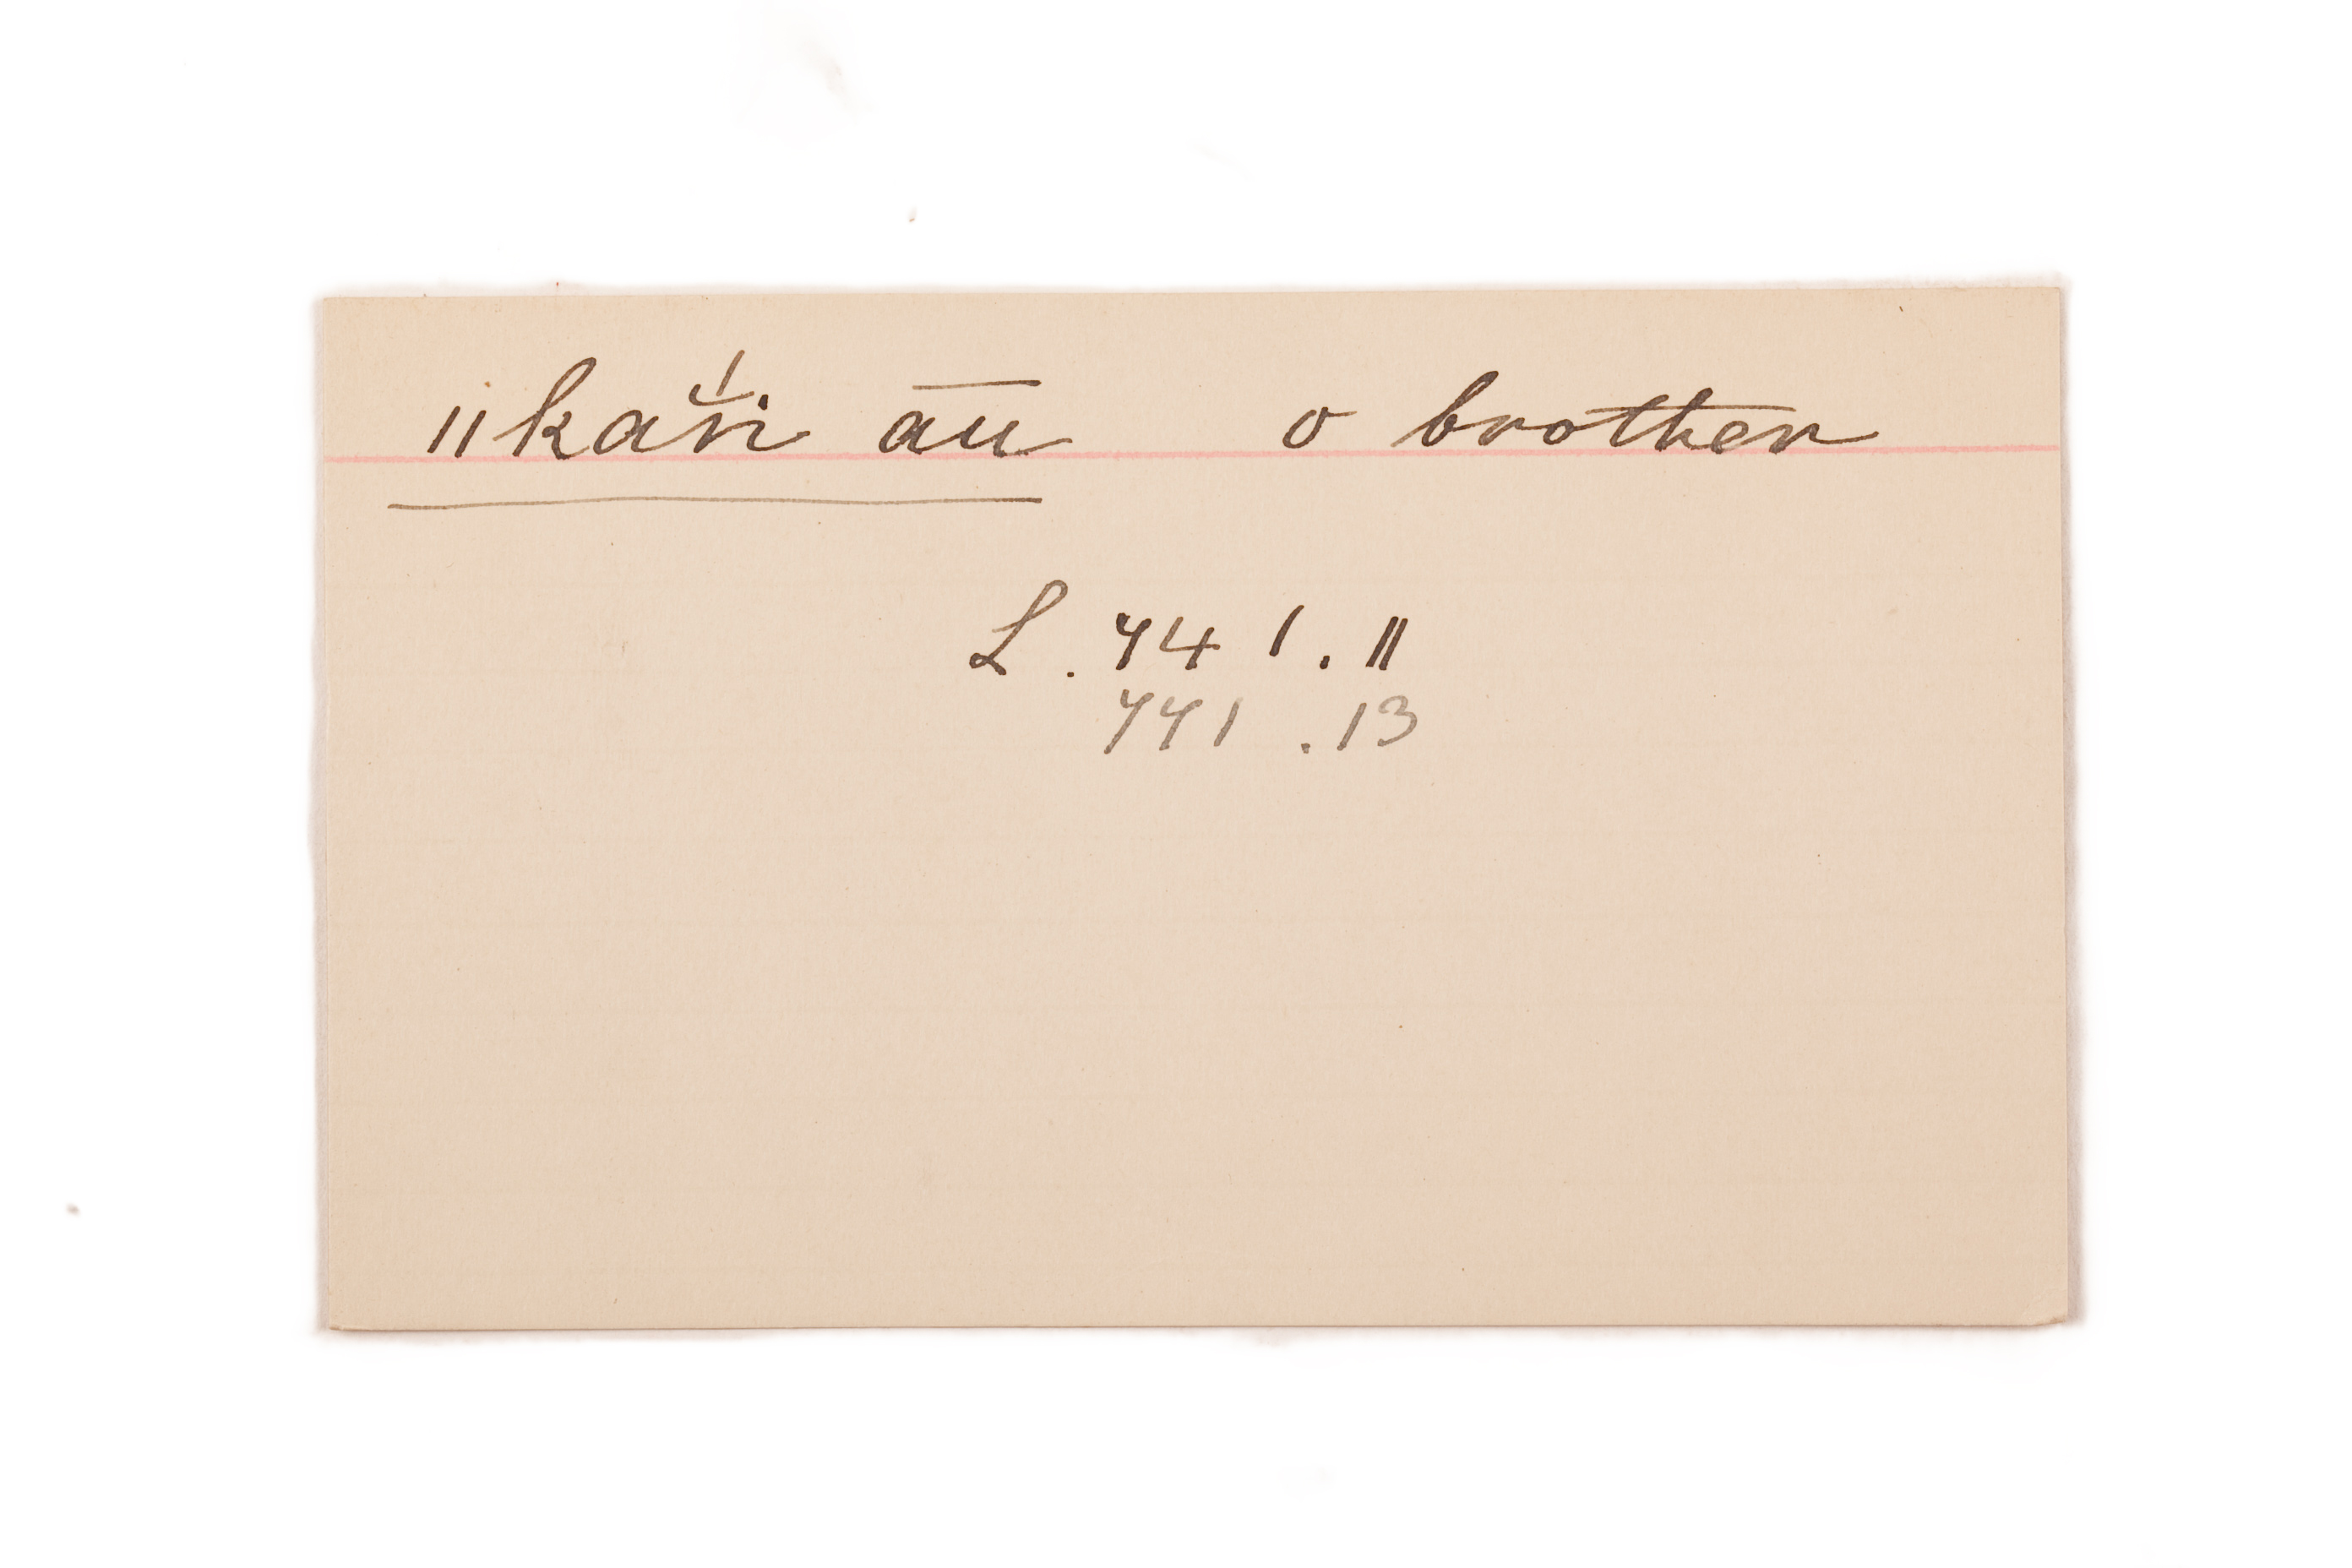 ǁkař́i a͞u o brother
L. 441.11
441.13